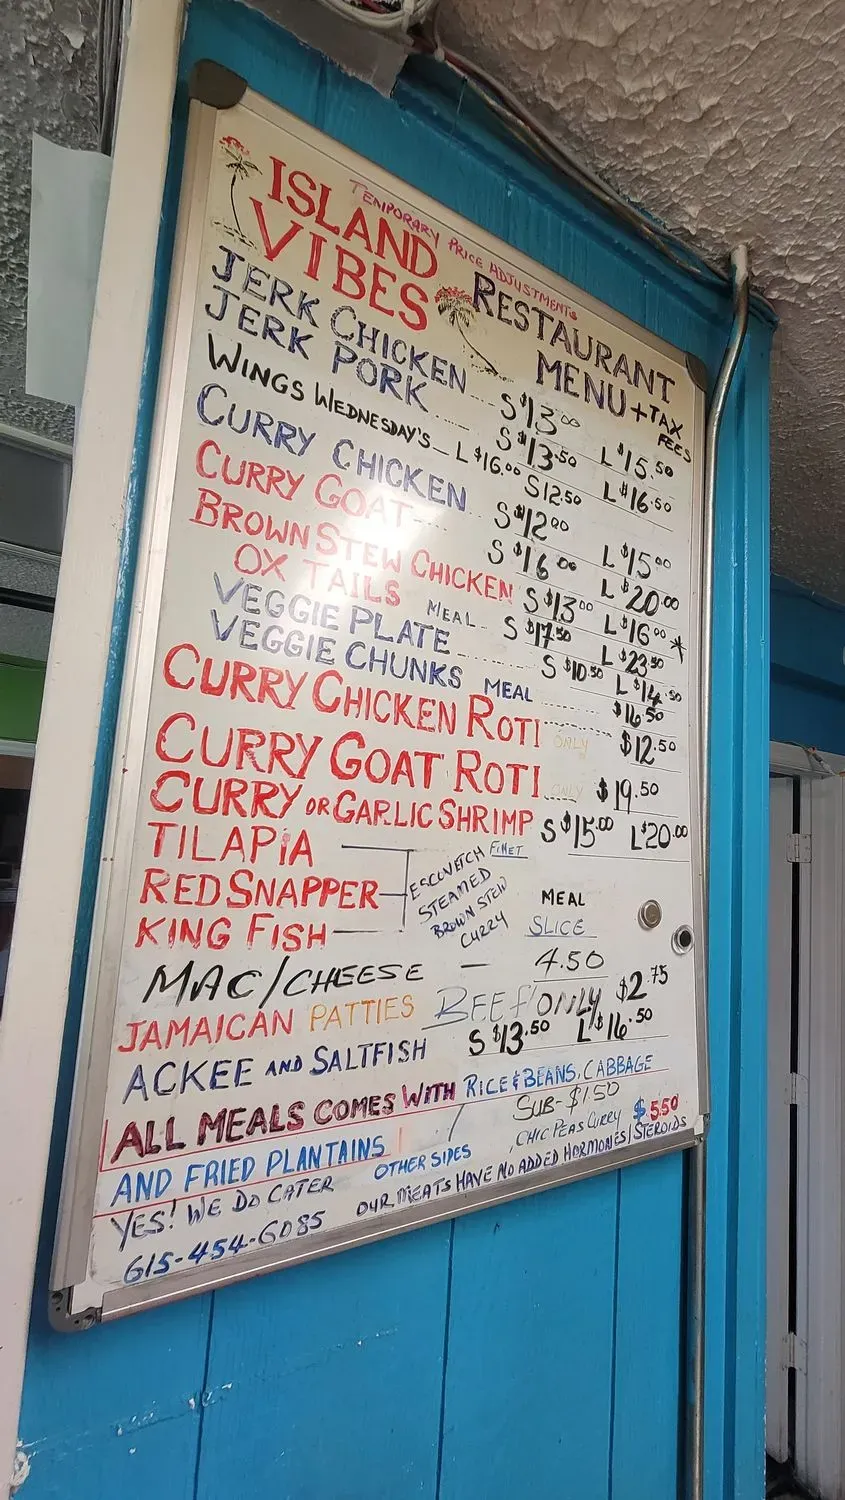 TEMPORARY PRICE ADJUSTMENTS
ISLAND
VIBES
RESTAURANT
MENU + TAX
FEES
JERK CHICKEN S $13.00 L $15.50
JERK PORK S $13.50 L $16.50
WINGS WEDNESDAY'S L $16.00 S 12.50
CURRY CHICKEN S $12.00 L $15.00
CURRY GOAT S $16.00 L $20.00
BROWN STEW CHICKEN S $13.00 L $16.00 *
OX TAILS MEAL S $17.50 L $23.50
VEGGIE PLATE S $10.50 L $14.50
VEGGIE CHUNKS MEAL $16.50
CURRY CHICKEN ROTI ONLY $12.50
CURRY GOAT ROTI ONLY $19.50
CURRY OR GARLIC SHRIMP S $15.00 L $20.00
TILAPIA
RED SNAPPER
KING FISH
ESCOVETCH
STEAMED
BROWN STEW
CURRY
MEAL
SLICE
MAC/CHEESE — 4.50
JAMAICAN PATTIES BEEF ONLY $2.75
ACKEE AND SALTFISH S $13.50 L $16.50
ALL MEALS COMES WITH RICE & BEANS, CABBAGE
AND FRIED PLANTAINS
SUB-$1.50
OTHER SIDES , CHIC PEAS CURRY $5.50
YES! WE DO CATER
OUR MEATS HAVE NO ADDED HORMONES/STEROIDS
615-454-6085